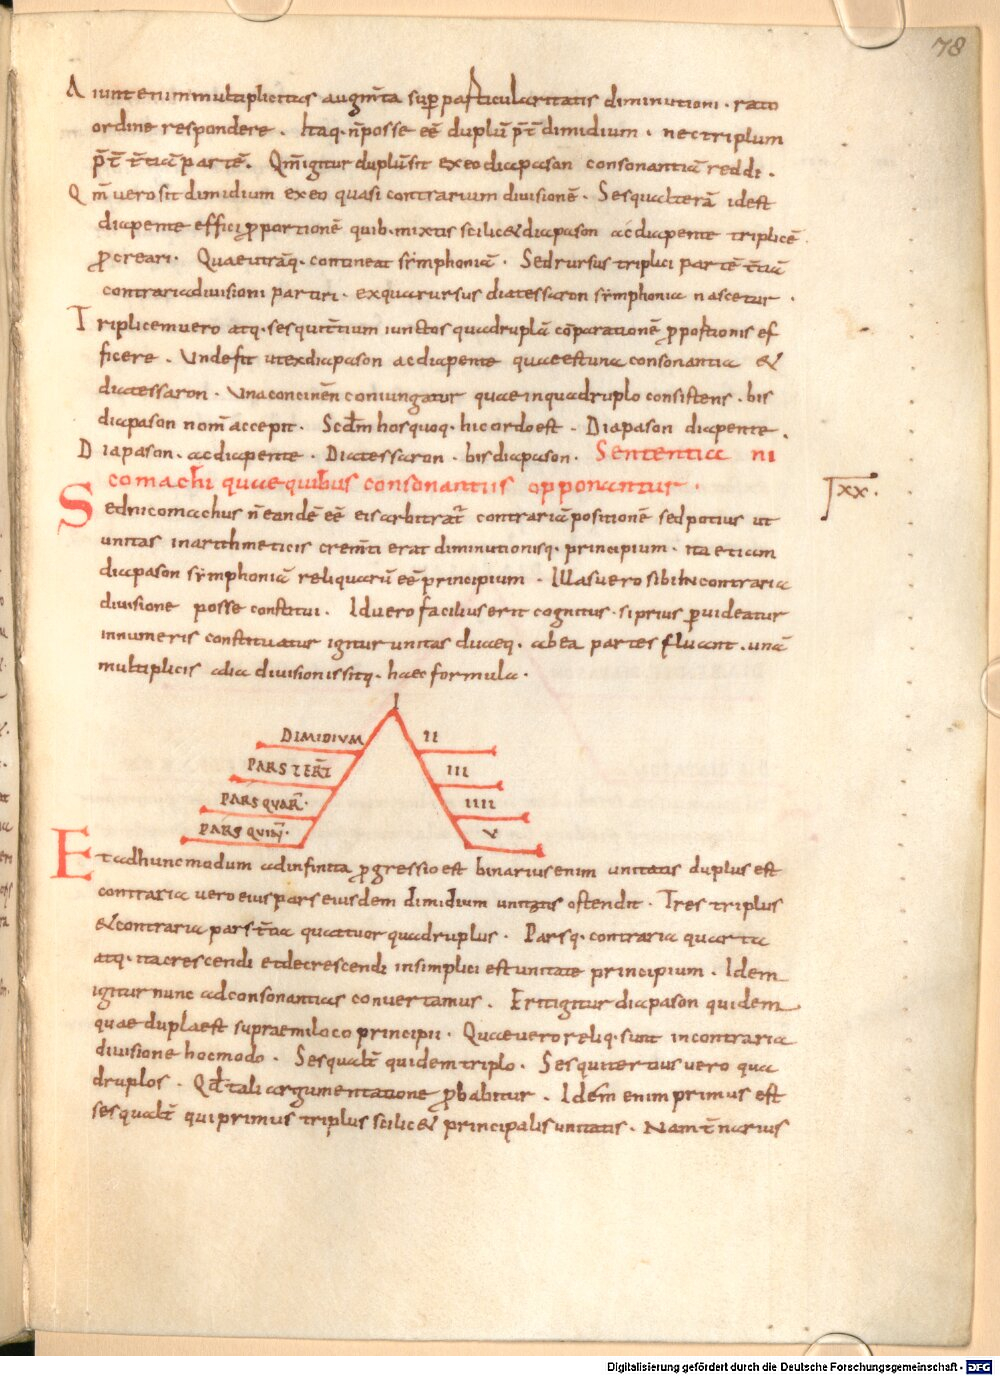 78
Aiunt enim multiplicitatis augm̄ta sup̱particularitatis diminutioni · rato
ordine respondere · Itaq· n̄ posse eē duplū p̄t̄ dimidium · nec triplum
p̄t̄ t̄tiā partē · Qm̄ igitur duplū sit ex eo diapason consonantiā reddi ·
Qm̄ vero sit dimidium ex eo quasi contrarium diuisionē · Sesqualterā idest
diapente effici ꝓportionē quib· mixtis scilic& diapason ac diapente triplicē
ꝓcreari · Quae utrāq· contineat sȳmphoniā · Sed rursus triplici partē t̄tiā
contraria diuisioni partiri · ex qua rursus diatessaron sȳmphonia nascetur ·
Triplicem uero atq· sesquit̄tium iunctos quadruplā cōparationē ꝓportionis ef
ficere · Unde fit ut ex diapason ac diapente quae est una consonantia &
diatessaron · Una concinen̄ coniungatur quae in quadruplo consistens · bis
diapason nom̄ accepit · Scd̄m hos quoq· hic ordo est · Diapason diapente ·
Diapason · ac diapente · Diatessaron · bis diapason · Sententia ni
comachi quae quibus consonantiis opponantur ·
XX·
Sed nicomachus n̄ eandē eē eis arbitrat̄ contrariā positionē sed potius ut
unitas in arithmeticis crem̄ti erat diminutionisq· principium · ita etiam
diapason sȳmphoniā reliquarū eē principium · Illas uero sibi in contraria
diuisione posse constitui · Id uero facilius erit cognitus · si prius ꝑuideatur
in numeris constituatur igitur unitas duaeq· ab ea partes fluant · unā
multiplicis alia diuisionis sitq· haec formula ·
I
DIMIDIUM II
PARS TERT̄ III
PARS QUAR̄· IIII
PARS QUIN̄· V
Et ad hunc modum ad infinita ꝓgressio est binarius enim unitatis duplus est
contraria vero eius pars eiusdem dimidium unitatis ostendit · Tres triplus
& contraria pars t̄tia quattuor quadruplus · Parsq· contraria quarta
atq· ita crescendi et decrescendi in simplici est unitate principium · Idem
igitur nunc ad consonantias convertamus · Erit igitur diapason quidem
quae dupla est supraemi loco principii · Quae uero reliq· sunt in contraria
diuisione hoc modo · Sesqualt̄ quidem triplo · Sesquitertius uero qua
druplos · Qd̄ tali argumentatione ꝓbabitur · Idem enim primus est
sesqualt̄ qui primus triplus scilic& principalis unitatis · Nam t̄narius
Digitalisierung gefördert durch die Deutsche Forschungsgemeinschaft - DFG